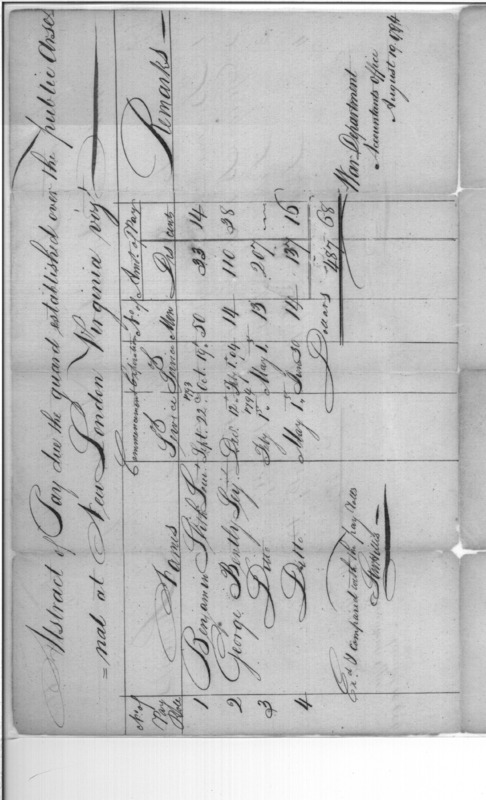 Abstract of Pay due the guard established over the public Arse
=nal at New London Virginia viz.
No. of Pay Role
Names
Commencement of Service
Expiration of Service
No. of Men
Amt. of Pay
Drs Cents
Remarks
1 Benjamin Sept. 22d 1793 Oct. 19th 50 23 14
2 George Dec. 12th Feb. 1st 94 14 110 28
3 Ditto Feb. 1st 1794 May 1st 13 207 "
4 Ditto May 1st June 30 14 137 15
Dollars 487 68
Ex.d & Compared with the pay rolls
War Department
Accountants Office
August 19, 1794